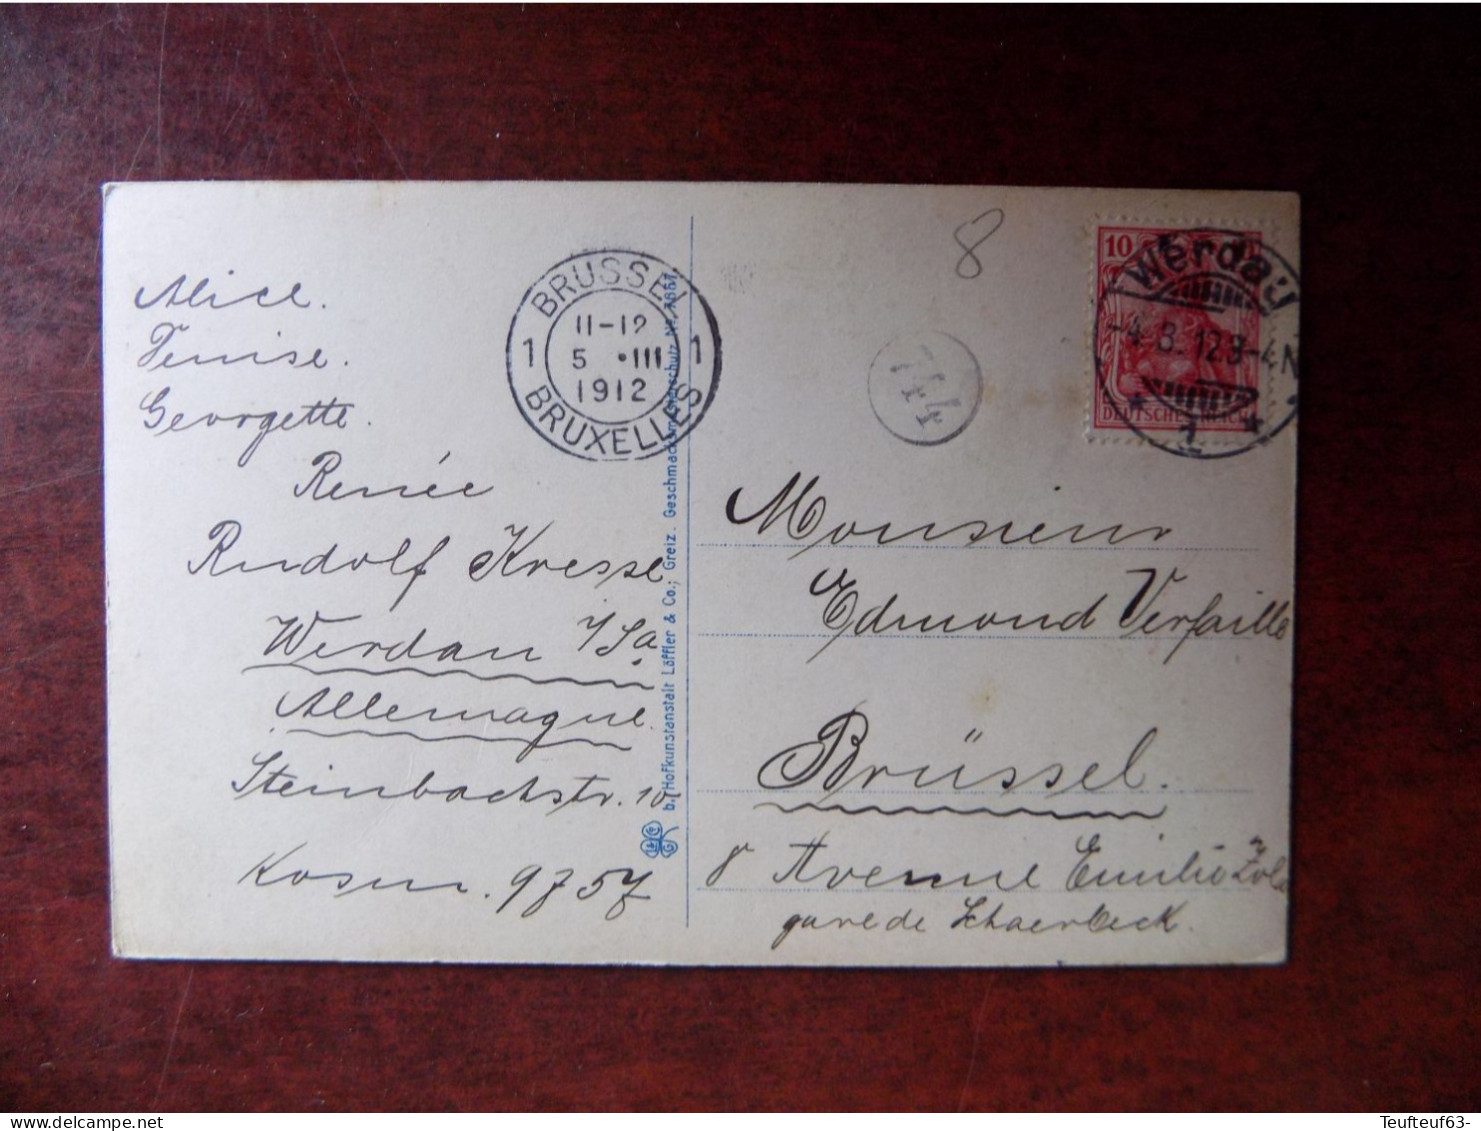 Alice.
Denise.
Georgette.
Renée
Rudolf Kresse
Werdau i/Sa
Allemagne
Steinbachstr. 10
BRÜSSEL
1 11-12 1
5 •III
1912
BRUXELLES
b. Hofkunstanstalt Löffler & Co.; Greiz. Geschmacksmusterschutz
L & C
G
8
744
10
DEUTSCHES REICH
Werdau
-4.3.12 3-4N
* 1 *
Monsieur
Edmond Verfaille
Brüssel.
8 Avenue Emile Zola
gare de Schaerbeek.
Teufteuf63-